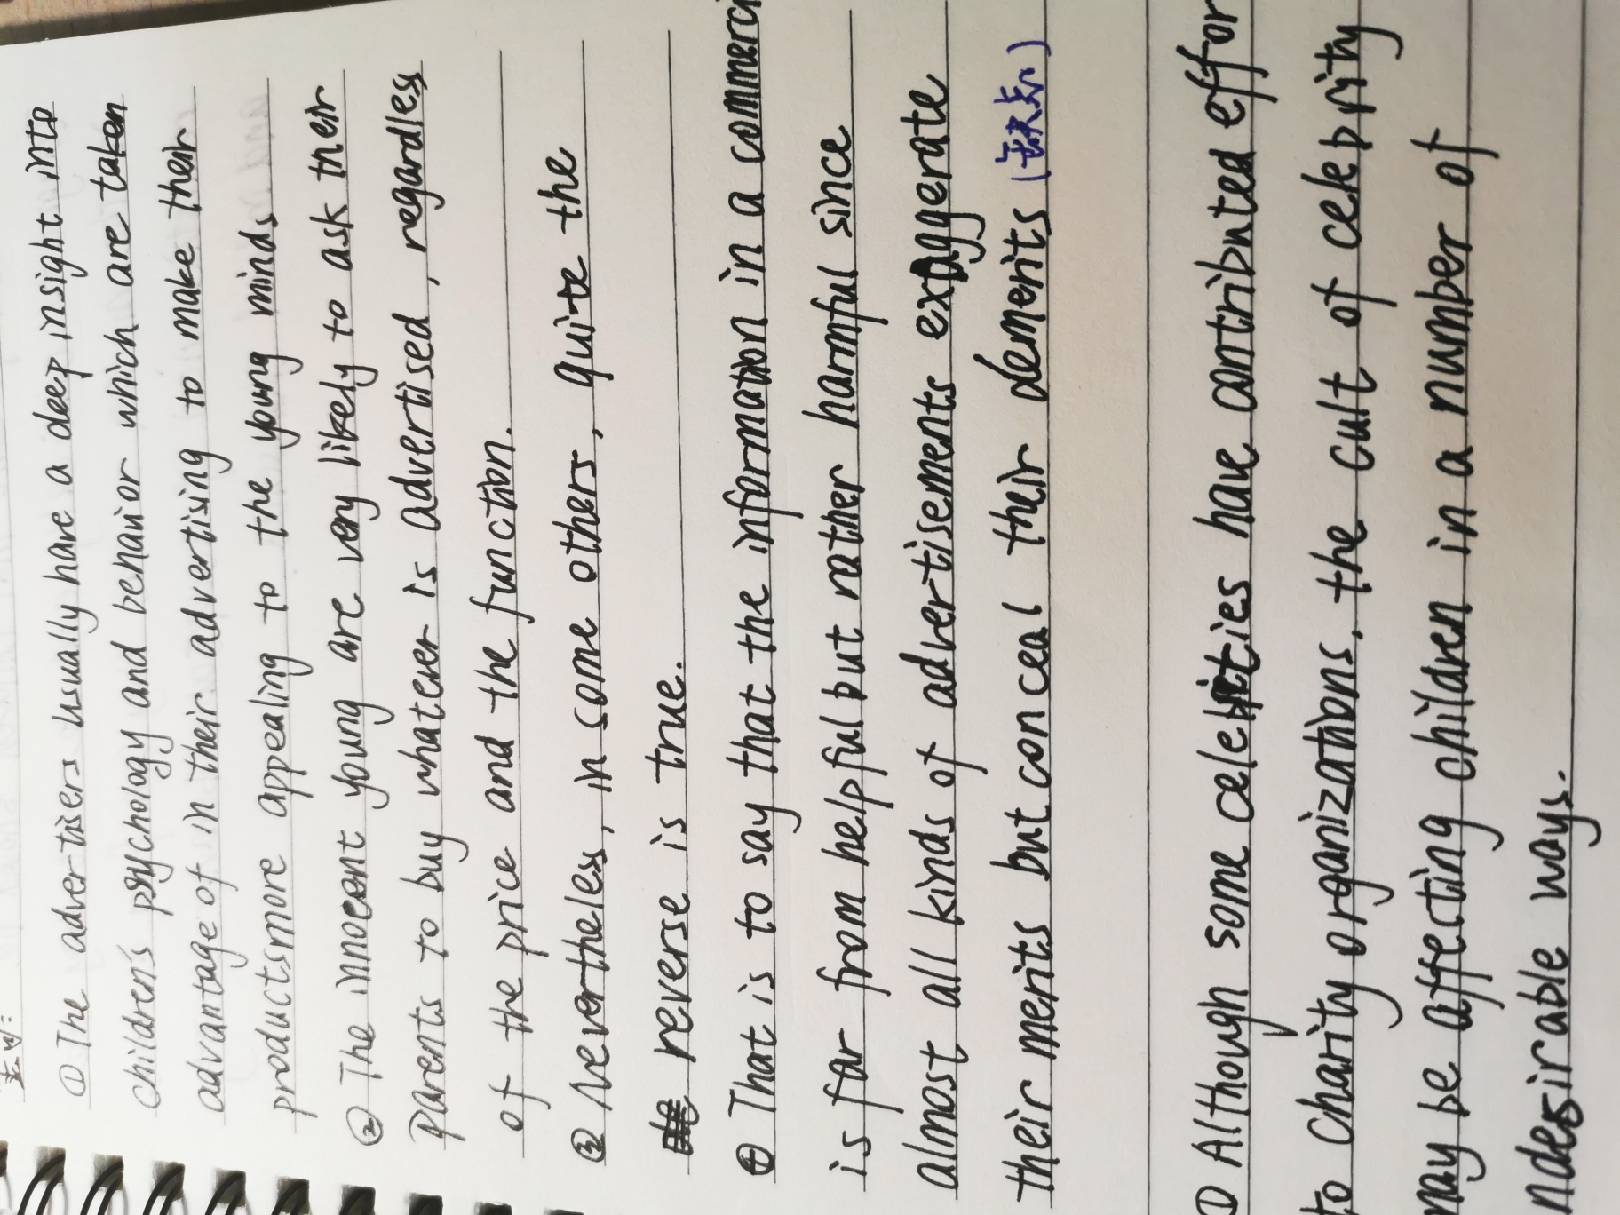 ① The advertisers usually have a deep insight into
children's psychology and behavior which are taken
advantage of in their advertising to make their
productsmore appealing to the young minds
② The innocent young are very likely to ask their
parents to buy whatever is advertised, regardless
of the price and the function.
③ Nevertheless, in some others, quite the
reverse is true.
④ That is to say that the information in a commerci
is far from helpful but rather harmful since
almost all kinds of advertisements exaggerate
their merits but conceal their demerits (缺点)
① Although some celebrities have contributed effor
to charity organizations, the cult of celebrity
may be affecting children in a number of
ndesirable ways.